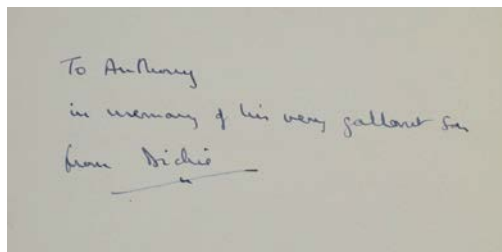 To Anthony
in memory of his very gallant son
from Dickie